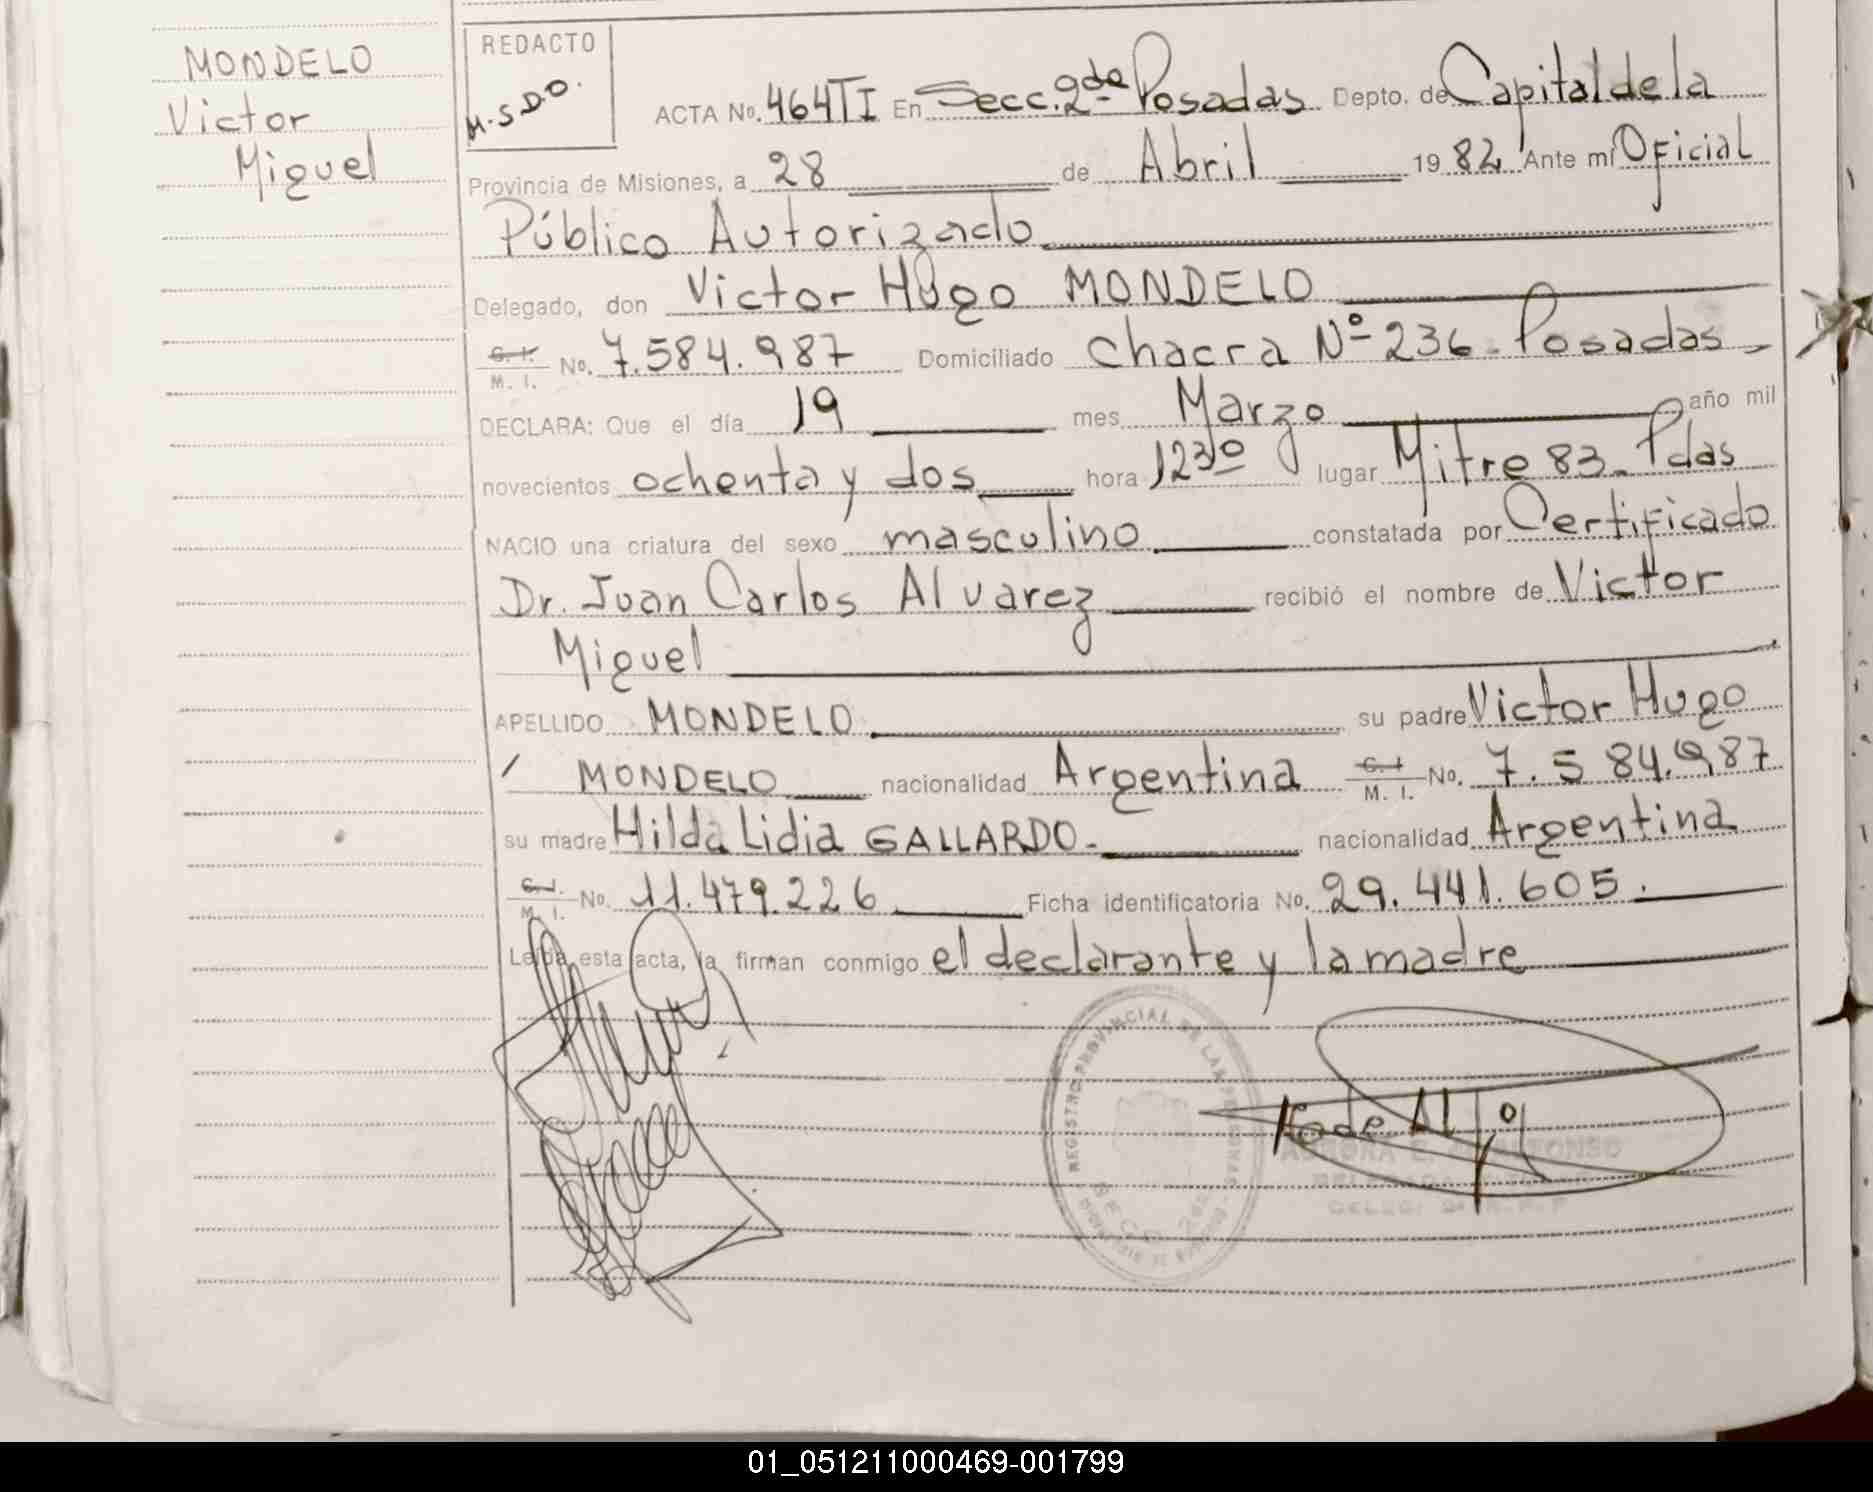 MONDELO
Victor
Miguel
REDACTO
M.S.D.O.
ACTA No. 464TI En Secc. 2da Posadas Depto. de Capital de la
Provincia de Misiones, a 28 de Abril 1982 Ante mí Oficial
Público Autorizado
Delegado, don Victor Hugo MONDELO
C. I. M. I. No. 7.584.987 Domiciliado Chacra Nº 236. Posadas
DECLARA: Que el día 19 mes Marzo año mil
novecientos ochenta y dos hora 12 30 lugar Mitre 83. Pdas
NACIO una criatura del sexo masculino constatada por Certificado
Dr. Juan Carlos Alvarez recibió el nombre de Victor
Miguel
APELLIDO MONDELO su padre Victor Hugo
MONDELO nacionalidad Argentina C. I. M. I. No. 7.584.987
su madre Hilda Lidia GALLARDO.- nacionalidad Argentina
C. I. M. I. No. 11.479.226 Ficha identificatoria No. 29.441.605.
Leída esta acta, la firman conmigo el declarante y la madre
REGISTRO PROVINCIAL DE LAS PERSONAS
01_051211000469-001799